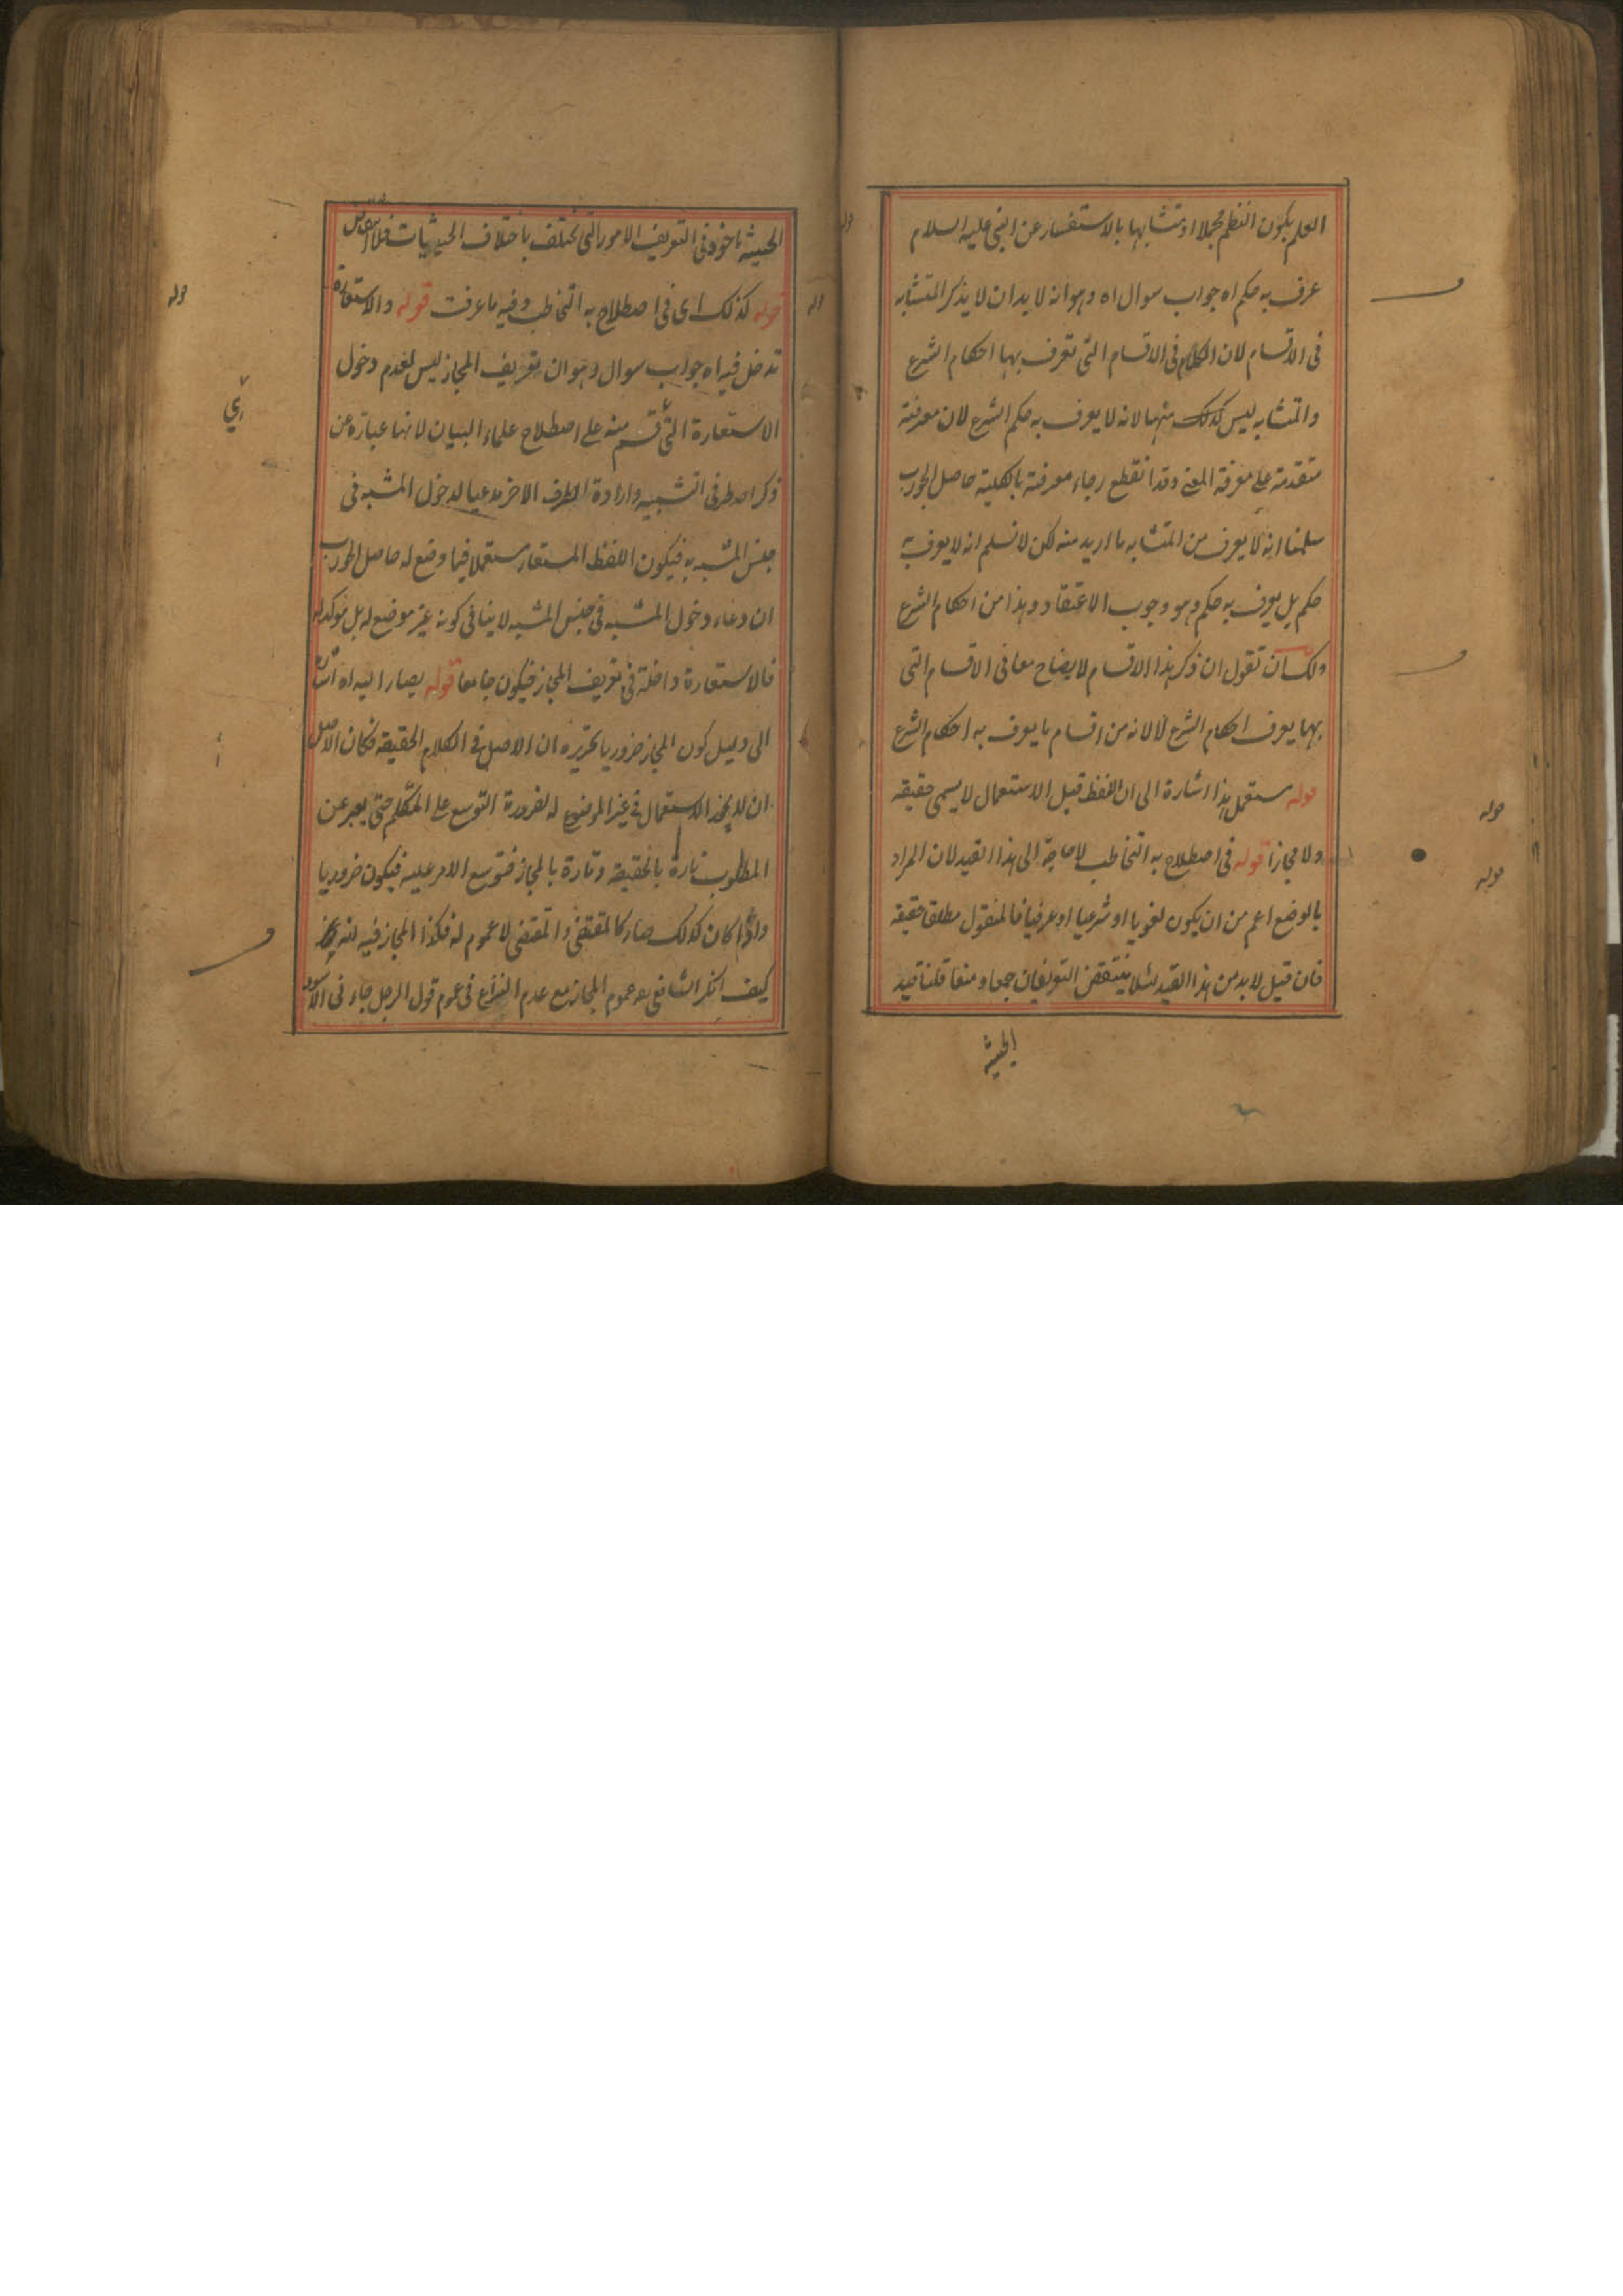 العلم بكون النظم مجملا او متشابها بالاستفسار عن النبي عليه السلام
عرف به حكم اه جواب سوال اه وهو انه لا بد ان لا يذكر المتشابه
فى الاقسام لان الكلام فى الاقسام التى تعرف بها احكام الشرع
والمتشابه ليس كذلك منها لانه لا يعرف به حكم الشرع لان معرفته
متقدمة على معرفة المعنى وقد انقطع رجاء معرفته بالكلية حاصل الجواب
سلمنا انه لا يعرف من المتشابه ما اريد منه لكن لا نسلم انه لا يعرف به
حكم بل يعرف به حكم وهو وجوب الاعتقاد وهذا من احكام الشرع
ولك ان تقول ان ذكر هذا الاقسام لايضاح معانى الاقسام التى
بها يعرف احكام الشرع لا لانه من اقسام ما يعرف به احكام الشرع
قوله مستعمل هذا اشارة الى ان اللفظ قبل الاستعمال لا يسمى حقيقة
ولا مجازا قوله فى اصطلاح به التخاطب لا حاجة الى هذا القيد لان المراد
بالوضع اعم من ان يكون لغويا او شرعيا او عرفيا فالمنقول مطلقا حقيقة
فان قيل لا بد من هذا القيد لئلا ينتقض التعريفان جمعا ومنعا قلنا قيد
الحيثية
الحيثية ماخوذ فى التعريف الامور التى تختلف باختلاف الحيثيات فلا
قوله كذلك اى فى اصطلاح به التخاطب وفيه ما عرفت قوله والاستعارة
تدخل فيه اه جواب سوال وهو ان تعريف المجاز ليس لعدم دخول
الاستعارة التى قسم منه على اصطلاح علماء البيان لانها عبارة عن
ذكر احد طرفى التشبيه وارادة الطرف الاخر مدعيا لدخول المشبه فى
جنس المشبه به فيكون اللفظ المستعار مستعملا فيما وضع له حاصل الجواب
ان دعاء دخول المشبه فى جنس المشبه لا ينافى كونه غير موضع له بل موكد له
فالاستعارة داخلة فى تعريف المجاز فيكون جامعا قوله يصار اليه اه اشارة
الى دليل كون المجاز ضروريا تحريره ان الاصل فى الكلام الحقيقة فكان الاصل
ان لا يجوز الاستعمال فى غير الموضوع له لضرورة التوسع على المتكلم حتى يعبر عن
المطلوب تارة بالحقيقة وتارة بالمجاز فتوسع الامر عليه فيكون ضروريا
واذا كان كذلك صار كالمقتضى والمقتضى لا عموم له فكذا المجاز فيه
كيف انكر الشافعى عموم المجاز مع عدم النزاع فى عموم قول الرجل جاء نى
قوله
قوله
قوله